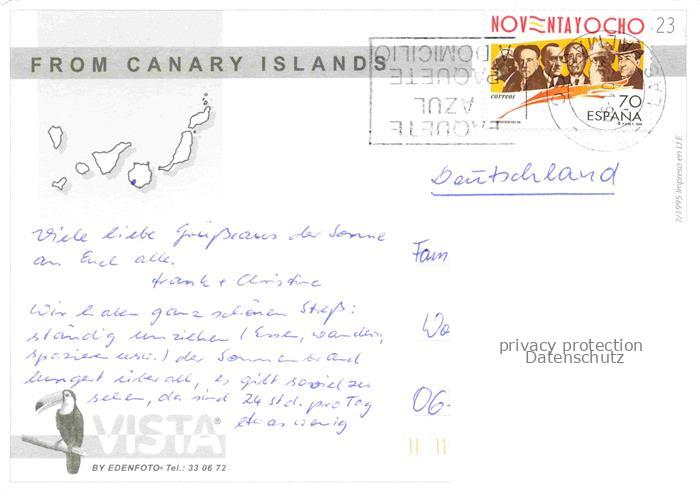 NOVENTAYOCHO 23
FROM CANARY ISLANDS
PAQUETE
AZUL
PAQUETE
A DOMICILIO
CORREOS
70
ESPAÑA
Deutschland
7/1995 Impreso en U.E.
Viele liebe Grüße aus der Sonne
an Euch alle.
Frank + Christine
Wir haben ganz schönen Streß:
ständig umziehen (Essen, wandern,
spazieren usw.) der Sonnenbrand
lungert überall, es gibt soviel zu
sehen, da sind 24 Std. pro Tag
etwas wenig
Fam
Wo
06
privacy protection
Datenschutz
VISTA®
BY EDENFOTO® Tel.: 33 06 72